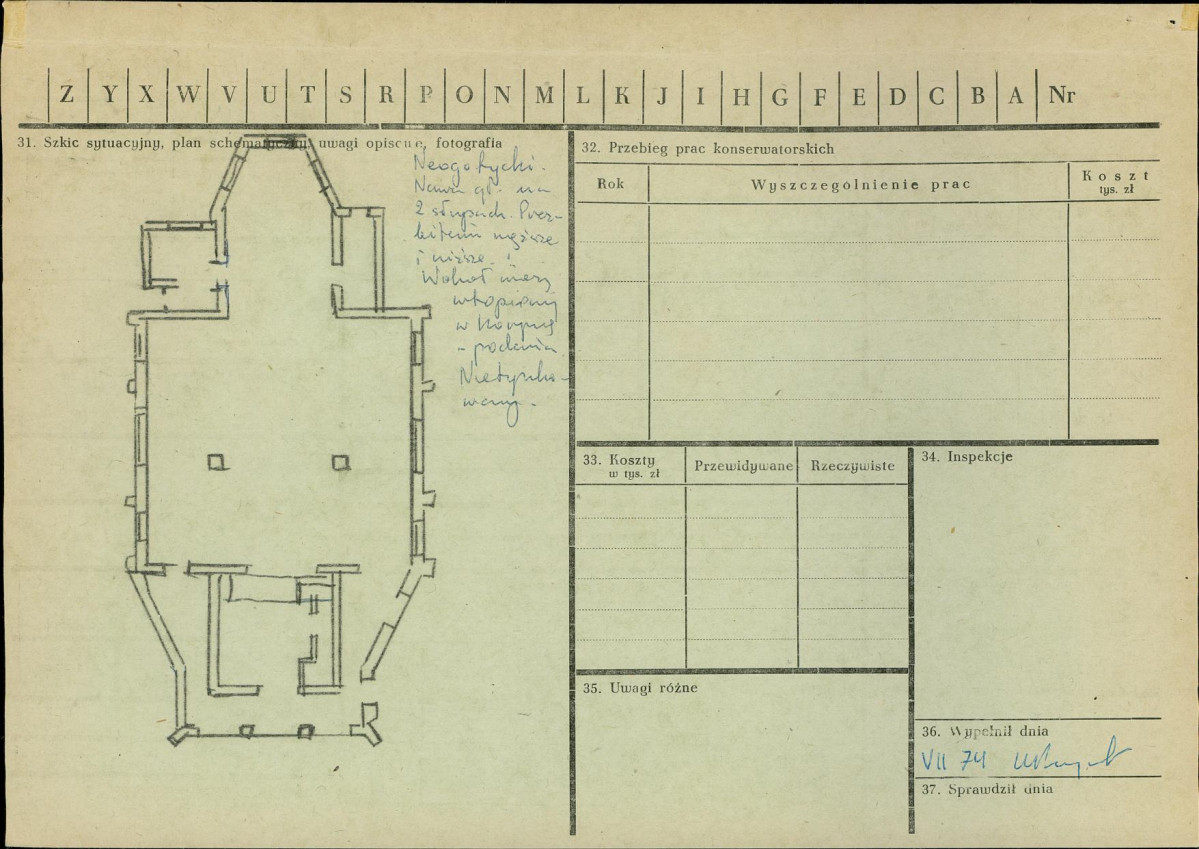 Z Y X W V U T S R P O N M L K J I H G F E D C B A Nr
31. Szkic sytuacyjny, plan schematyczny, uwagi opisowe, fotografia
Neogotycki.
Nawa gł. na
2 słupach. Prez-
biterium węższe
i niższe.
Wokół wieży
w korpus
Nietynko-
wany.
32. Przebieg prac konserwatorskich
Rok Wyszczególnienie prac Koszt
tys. zł
33. Koszty
w tys. zł
Przewidywane Rzeczywiste
34. Inspekcje
35. Uwagi różne
36. Wypełnił dnia
VII 74
37. Sprawdził dnia